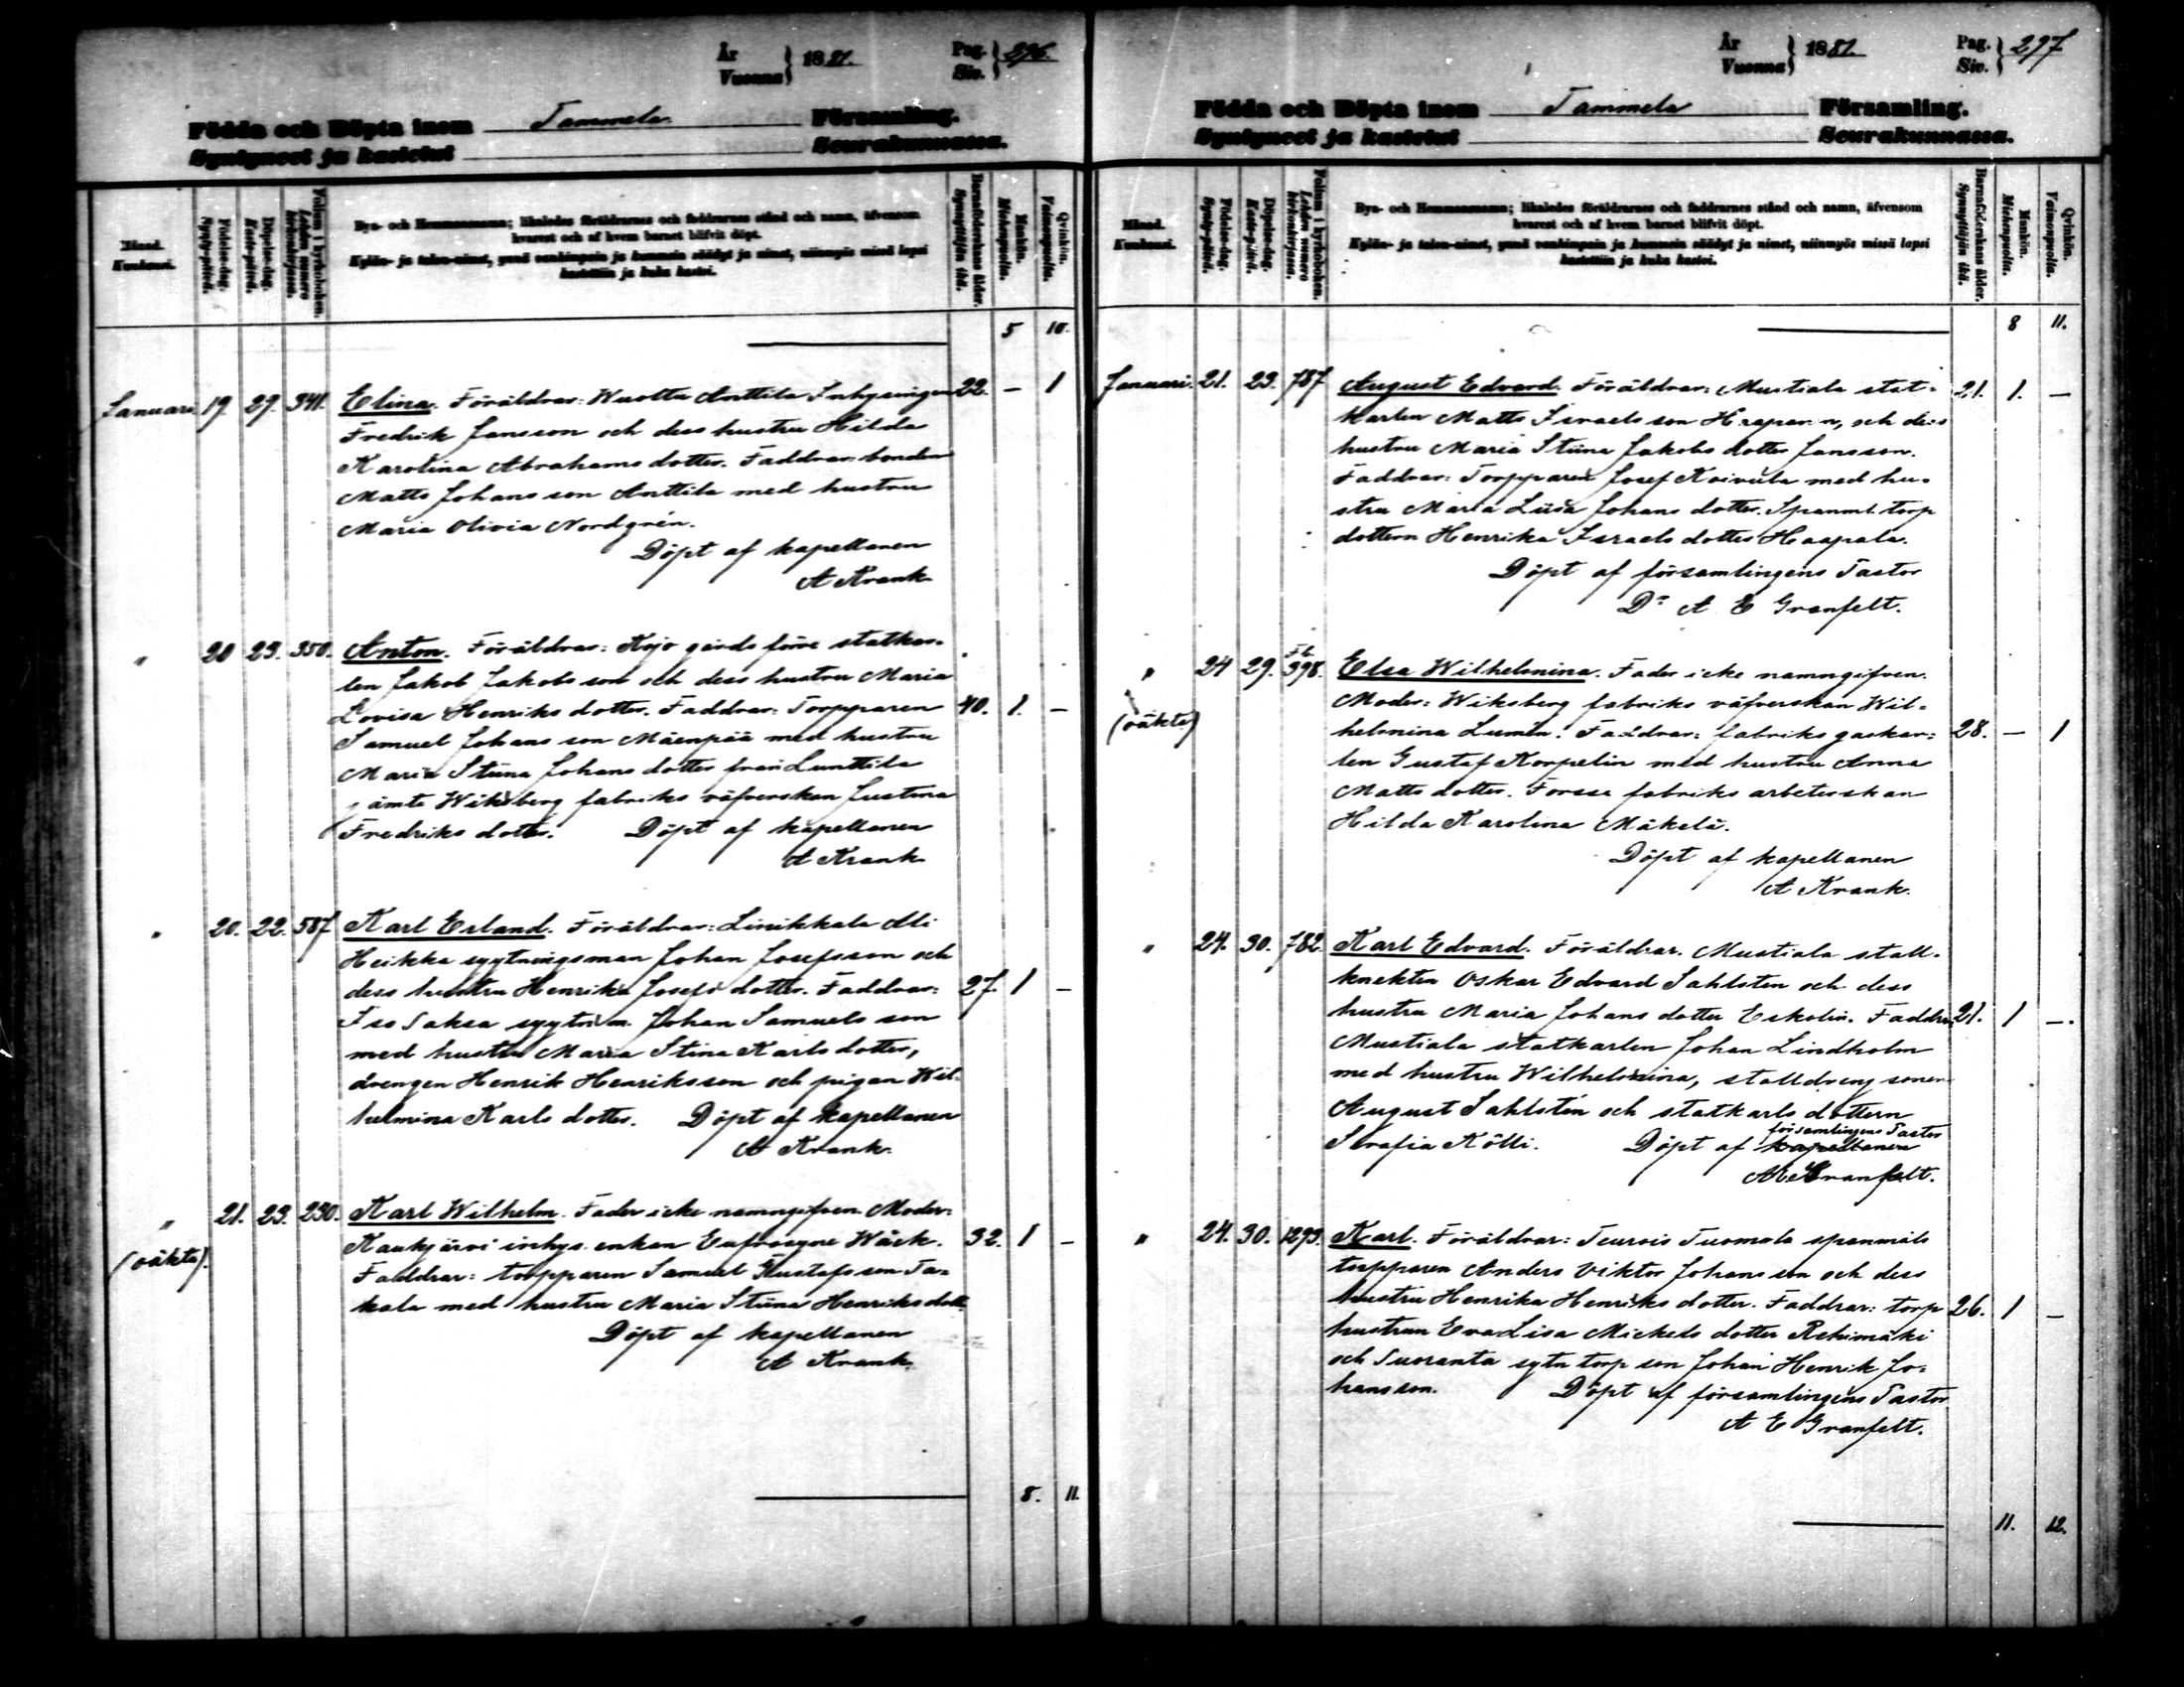 År
Vuonna } 1881.
Pag.
Siv. } 296.
Födda och Döpta inom Tammela Församling.
Syntyneet ja kastetut Seurakunnassa.
Månad.
Kuukausi.
Födelse-dag.
Synty-päivä.
Döpelse-dag.
Kaste-päivä.
Folium i kyrkoboken.
Lehden numero
kirkonkirjassa.
Bya- och Hemmansnamn; likaledes föräldrarnes och faddrarnes stånd och namn, äfvensom
hvarest och af hvem barnet blifvit döpt.
Kylän- ja talon-nimet, ynnä vanhimpain ja kummein säädyt ja nimet, niinmyös missä lapsi
kastettiin ja kuka kastoi.
Barnaföderskans ålder.
Synnyttäjän ikä.
Mankön.
Miehenpuolia.
Qvinkön.
Vaimonpuolia.
5 10.
Januari. 19. 29. 341. Elina. Föräldrar: Wuotta Anttila Inhysingen 22. — 1
Fredrik Jansson och dess hustru Hilda
Karolina Abrahams dotter. Faddrar: bonden
Matts Johansson Anttila med hustru
Maria Olivia Nordgrén.
Döpt af kapellanen
A Krank.
" 20 23. 350. Anton. Föräldrar: Kojo gårds förre statkar-
len Jakob Jakobsson och dess hustru Maria
Lovisa Henriks dotter. Faddrar: Torpparen 40. 1. —
Samuel Johansson Mäenpää med hustru
Maria Stiina Johans dotter från Lunttila
jämte Wiksberg fabriks väfverskan Justina
Fredriks dotter. Döpt af kapellanen
A Krank
" 20. 22. 587 Karl Erland. Föräldrar: Liesikkala Olli
Heikka sytningsman Johan Josefsson och
dess hustru Henrika Josefs dotter. Faddrar: 27. 1 —
Iso Saksa sytnim. Johan Samuels son
med hustru Maria Stina Karls dotter,
drengen Henrik Henriksson och pigan Wil-
helmina Karls dotter. Döpt af kapellanen
A Krank.
" 21. 23. 230. Karl Wilhelm. Fader icke namngifven. Moder:
(oäkta). Kaukjärvi inhys. enkan Eufrosyne Wäck. 32. 1 —
Faddrar: torpparen Samuel Gustafsson Ta-
kala med hustru Maria Stiina Henriks dott.
Döpt af kapellanen
A Krank.
8. 11.
År
Vuonna } 1881.
Pag.
Siv. } 297
Födda och Döpta inom Tammela Församling.
Syntyneet ja kastetut Seurakunnassa.
Månad.
Kuukausi.
Födelse-dag.
Synty-päivä.
Döpelse-dag.
Kaste-päivä.
Folium i kyrkoboken.
Lehden numero
kirkonkirjassa.
Bya- och Hemmansnamn; likaledes föräldrarnes och faddrarnes stånd och namn, äfvensom
hvarest och af hvem barnet blifvit döpt.
Kylän- ja talon-nimet, ynnä vanhimpain ja kummein säädyt ja nimet, niinmyös missä lapsi
kastettiin ja kuka kastoi.
Barnaföderskans ålder.
Synnyttäjän ikä.
Mankön.
Miehenpuolia.
Qvinkön.
Vaimonpuolia.
8 11.
Januari. 21. 23. 787 August Edvard. Föräldrar: Mustiala stat- 21. 1. —
karlen Matts Israels son och dess
hustru Maria Stiina Jakobs dotter Jansson.
Faddrar: Torpparen Josef Koivula med hu-
stru Maria Liisa Johans dotter. Spanml. torp
dottern Henrika Israels dotter Haapala.
Döpt af församlingens Pastor
Dr A E Granfelt.
" 24 29. Fb. 398. Elsa Wilhelmina. Fader icke namngifven.
(oäkta) Moder: Wiksberg fabriks väfverskan Wil-
helmina Lumén. Faddrar: fabriks gaskar- 28. — 1
len Gustaf Korpelin med hustru Anna
Matts dotter. Forssa fabriks arbeterskan
Hilda Karolina Mäkelä.
Döpt af kapellanen
A Krank.
" 24. 30. 782. Karl Edvard. Föräldrar. Mustiala stall-
knekten Oskar Edvard Sahlsten och dess
hustru Maria Johans dotter Eskolin. Faddrar 21. 1 —.
Mustiala statkarlen Johan Lindholm
med hustru Wilhelmina, stalldreng sonen
August Sahlstén och statkarls dottern
Serafia Kölli. Döpt af kapellanen församlingens Pastor
A E Granfelt.
" 24. 30. 1293. Karl. Föräldrar: Teurois Tuomola spanmåls
torpparen Anders Viktor Johansson och dess
hustru Henrika Henriks dotter. Faddrar: torp 26. 1 —
hustrun Eva Lisa Mickels dotter Rehimäki
och Suoranta sytn torp son Johan Henrik Jo-
hansson. Döpt af församlingens Pastor
A E Granfelt.
11. 12.